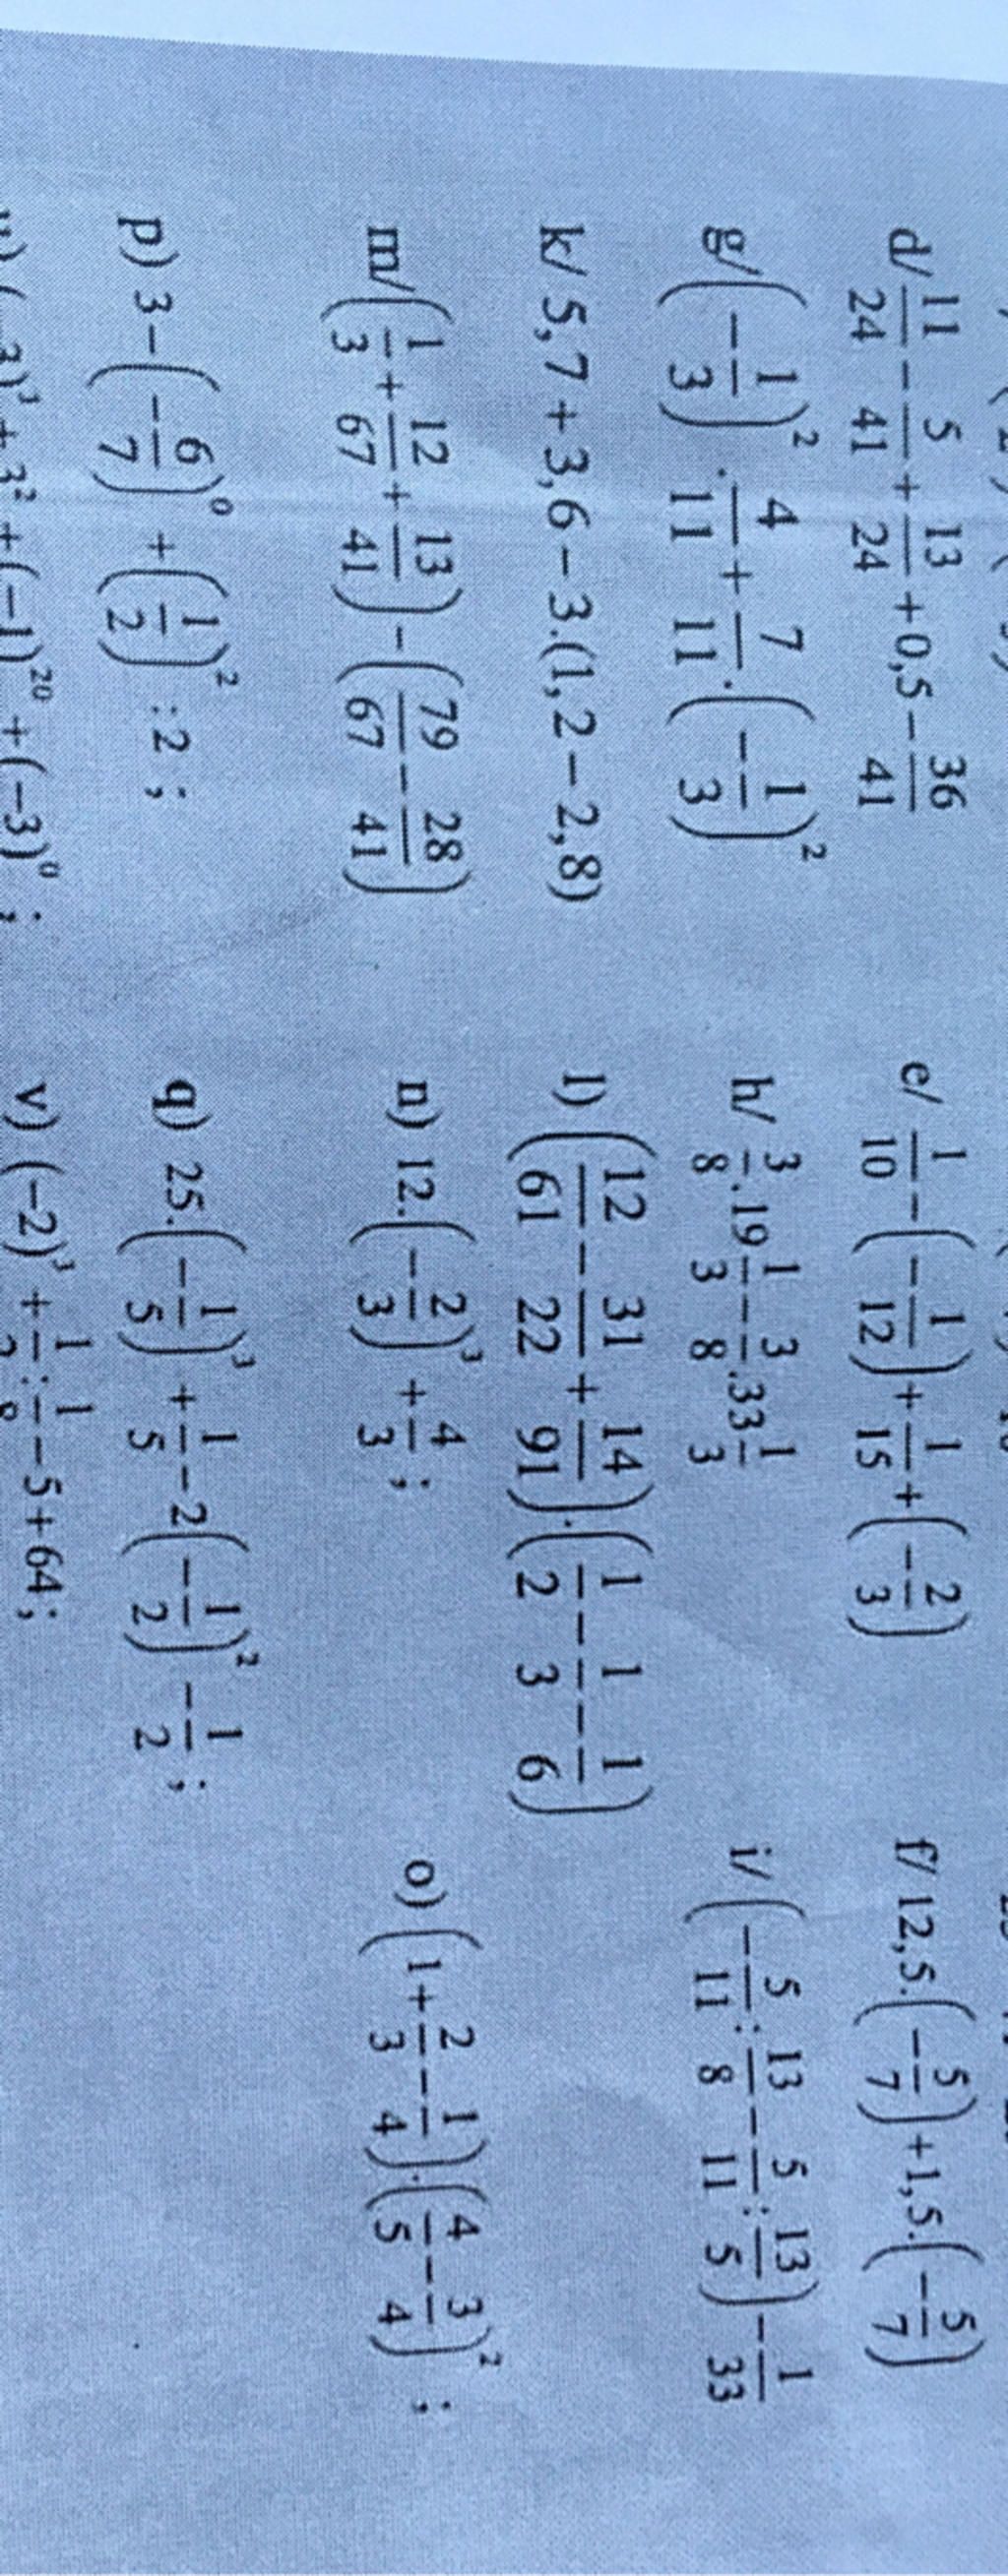 d/ 11/24 − 5/41 + 13/24 + 0,5 − 36/41 e/ 1/10 − (−1/12) + 1/15 + (−2/3) f/ 12,5.(−5/7) + 1,5.(−5/7)
g/ (−1/3)² . 4/11 + 7/11 . (−1/3)² h/ 3/8 .19 1/3 − 3/8 .33 1/3 i/ (−5/11 : 13/8 − 5/11 : 13/5) − 1/33
k/ 5,7 + 3,6 − 3.(1,2 − 2,8) l) (12/61 − 31/22 + 14/91) . (1/2 − 1/3 − 1/6)
m/ (1/3 + 12/67 + 13/41) − (79/67 − 28/41) n) 12.(−2/3)³ + 4/3 ; o) (1 + 2/3 − 1/4) . (4/5 − 3/4)² ;
p) 3 − (−6/7)⁰ + (1/2)² : 2 ; q) 25.(−1/5)³ + 1/5 − 2(−1/2)² − 1/2 ;
+ 3² + (−1)²⁰ + (−3)⁰ ; v) (−2)³ + − 5 + 64;